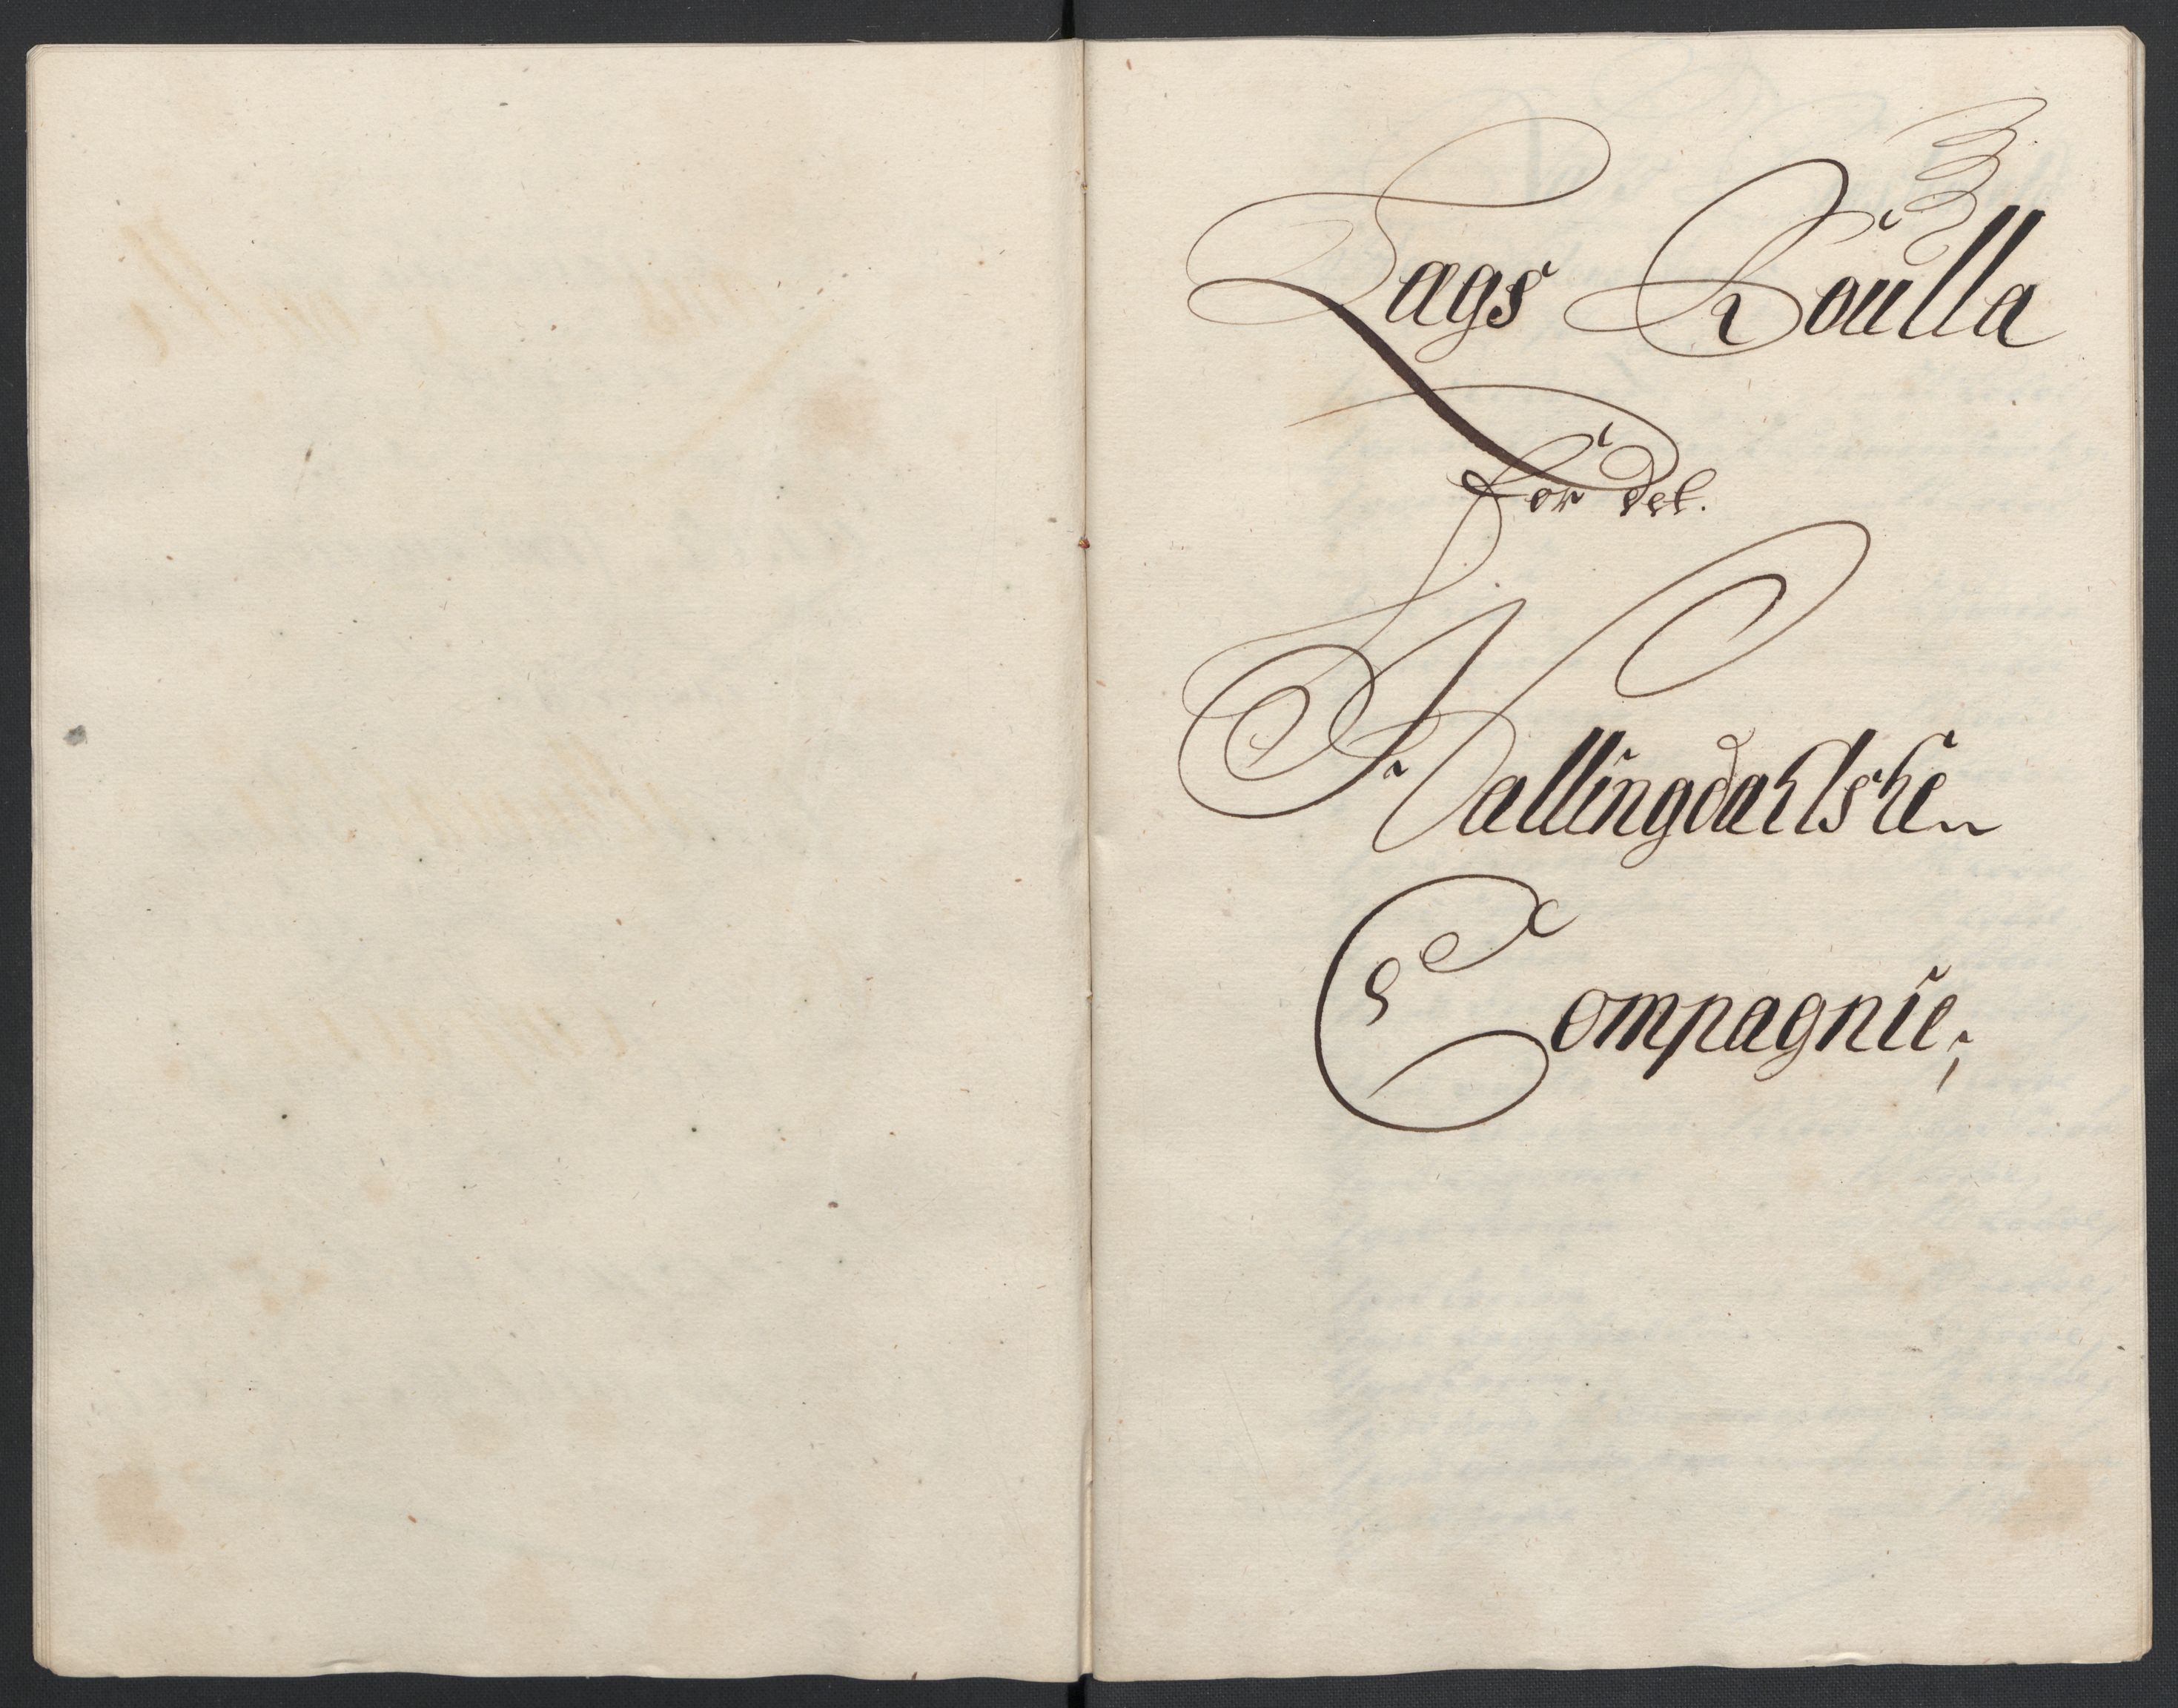 Lags Roulla
for det.
Hallingdahlske
Compagnie,